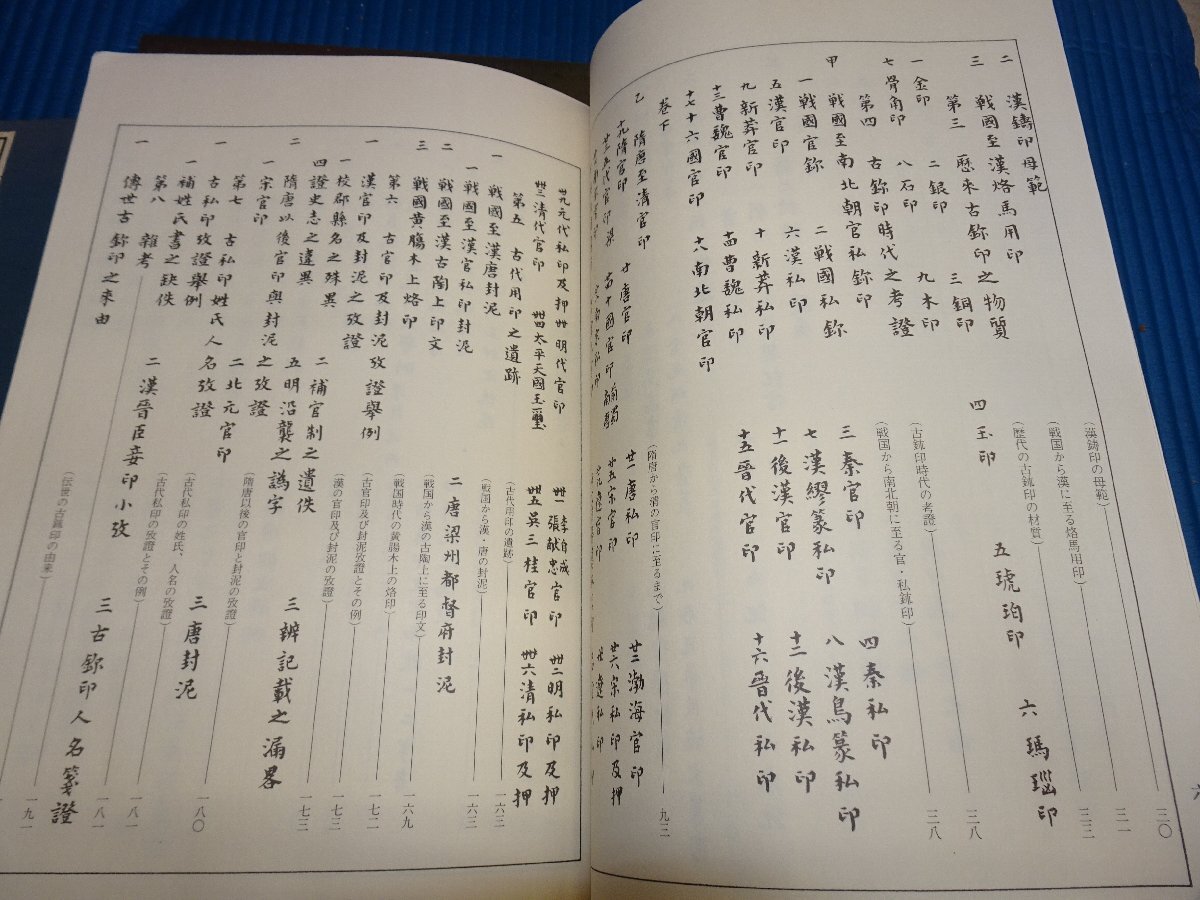 二 漢鑄印母範（漢鋳印の母範）三〇
三 戰國至漢烙馬用印（戦国から漢に至る烙馬用印）三一
第三 歷來古鉨印之物質（歴代の古鉨印の材質）三三
一 金印 二 銀印 三 銅印 四 玉印 五 琥珀印 六 瑪瑙印
七 骨角印 八 石印 九 木印
第四 古鉨印時代之考證（古鉨印時代の考證）三八
甲 戰國至南北朝官私鉨印（戦国から南北朝に至る官・私鉨印）三八
一 戰國官鉨 二 戰國私鉨 三 秦官印 四 秦私印
五 漢官印 六 漢私印 七 漢繆篆私印 八 漢鳥篆私印
九 新莽官印 十 新莽私印 十一 後漢官印 十二 後漢私印
十三 曹魏官印 十四 曹魏私印 十五 晉代官印 十六 晉代私印
十七 十六國官印 十八 南北朝官印
卷下
乙 隋唐至清官印（隋唐から清の官印に至るまで）九二
十九 隋官印 廿 唐官印 廿一 唐私印 廿二 渤海官印
廿三 五代官印 廿四 十國官印 廿五 宋官印 廿六 宋私印及押
卅九 元代私印及押 卅 明代官印 卅一 李自成張献忠官印 卅二 明私印及押
卅三 清代官印 卅四 太平天國玉璽 卅五 吳三桂官印 卅六 清私印及押
第五 古代用印之遺跡（古代用印の遺跡）一六二
一 戰國至漢唐封泥（戦国から漢・唐の封泥）一六二
一 戰國至漢官私印封泥 二 唐梁州都督府封泥 三 唐封泥
二 戰國至漢古陶上印文（戦国から漢の古陶上に至る印文）一六三
三 戰國黃腸木上烙印（戦国時代の黄腸木上の烙印）一六九
第六 古官印及封泥攷證舉例（古官印及び封泥攷證とその例）一七二
一 漢官印及封泥之攷證（漢の官印及び封泥の攷證）一七三
一 校郡縣名之殊異 二 補官制之遺佚 三 辨記載之漏畧
四 證史志之違異 五 明沿襲之譌字
二 隋唐以後官印與封泥之攷證（隋唐以後の官印と封泥の攷證）一七三
一 宋官印 二 北元官印
第七 古私印姓氏人名攷證（古代私印の姓氏、人名の攷證）一八〇
一 古私印攷證舉例（古代私印の攷證とその例）一八一
一 補姓氏書之缺佚 二 漢晉臣妾印小攷 三 古鉨印人名箋證
第八 雜考 一八一
一 傳世古鉨印之來由（伝世の古鉨印の由来）一九一